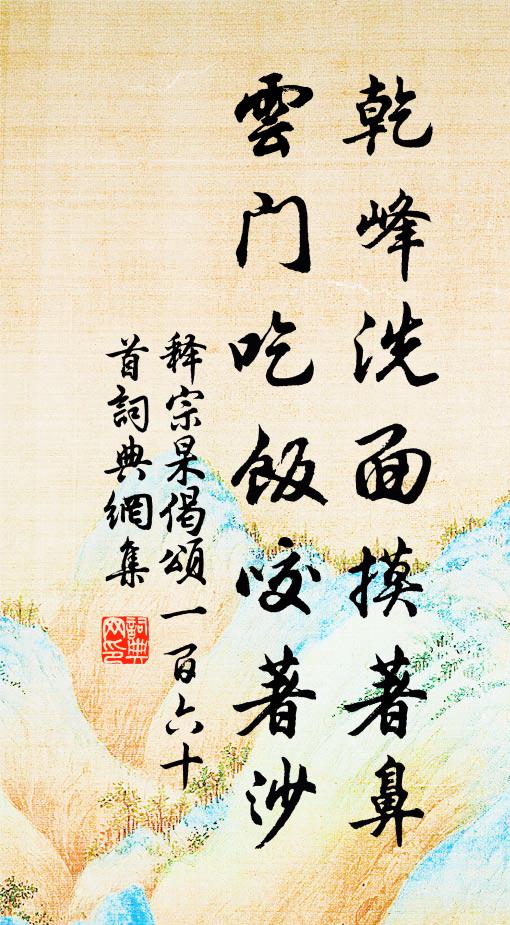 乾峰洗面摸著鼻
雲门吃飯咬著沙
释宗杲偈頌一百六十
首詞典網集
詞典
网印